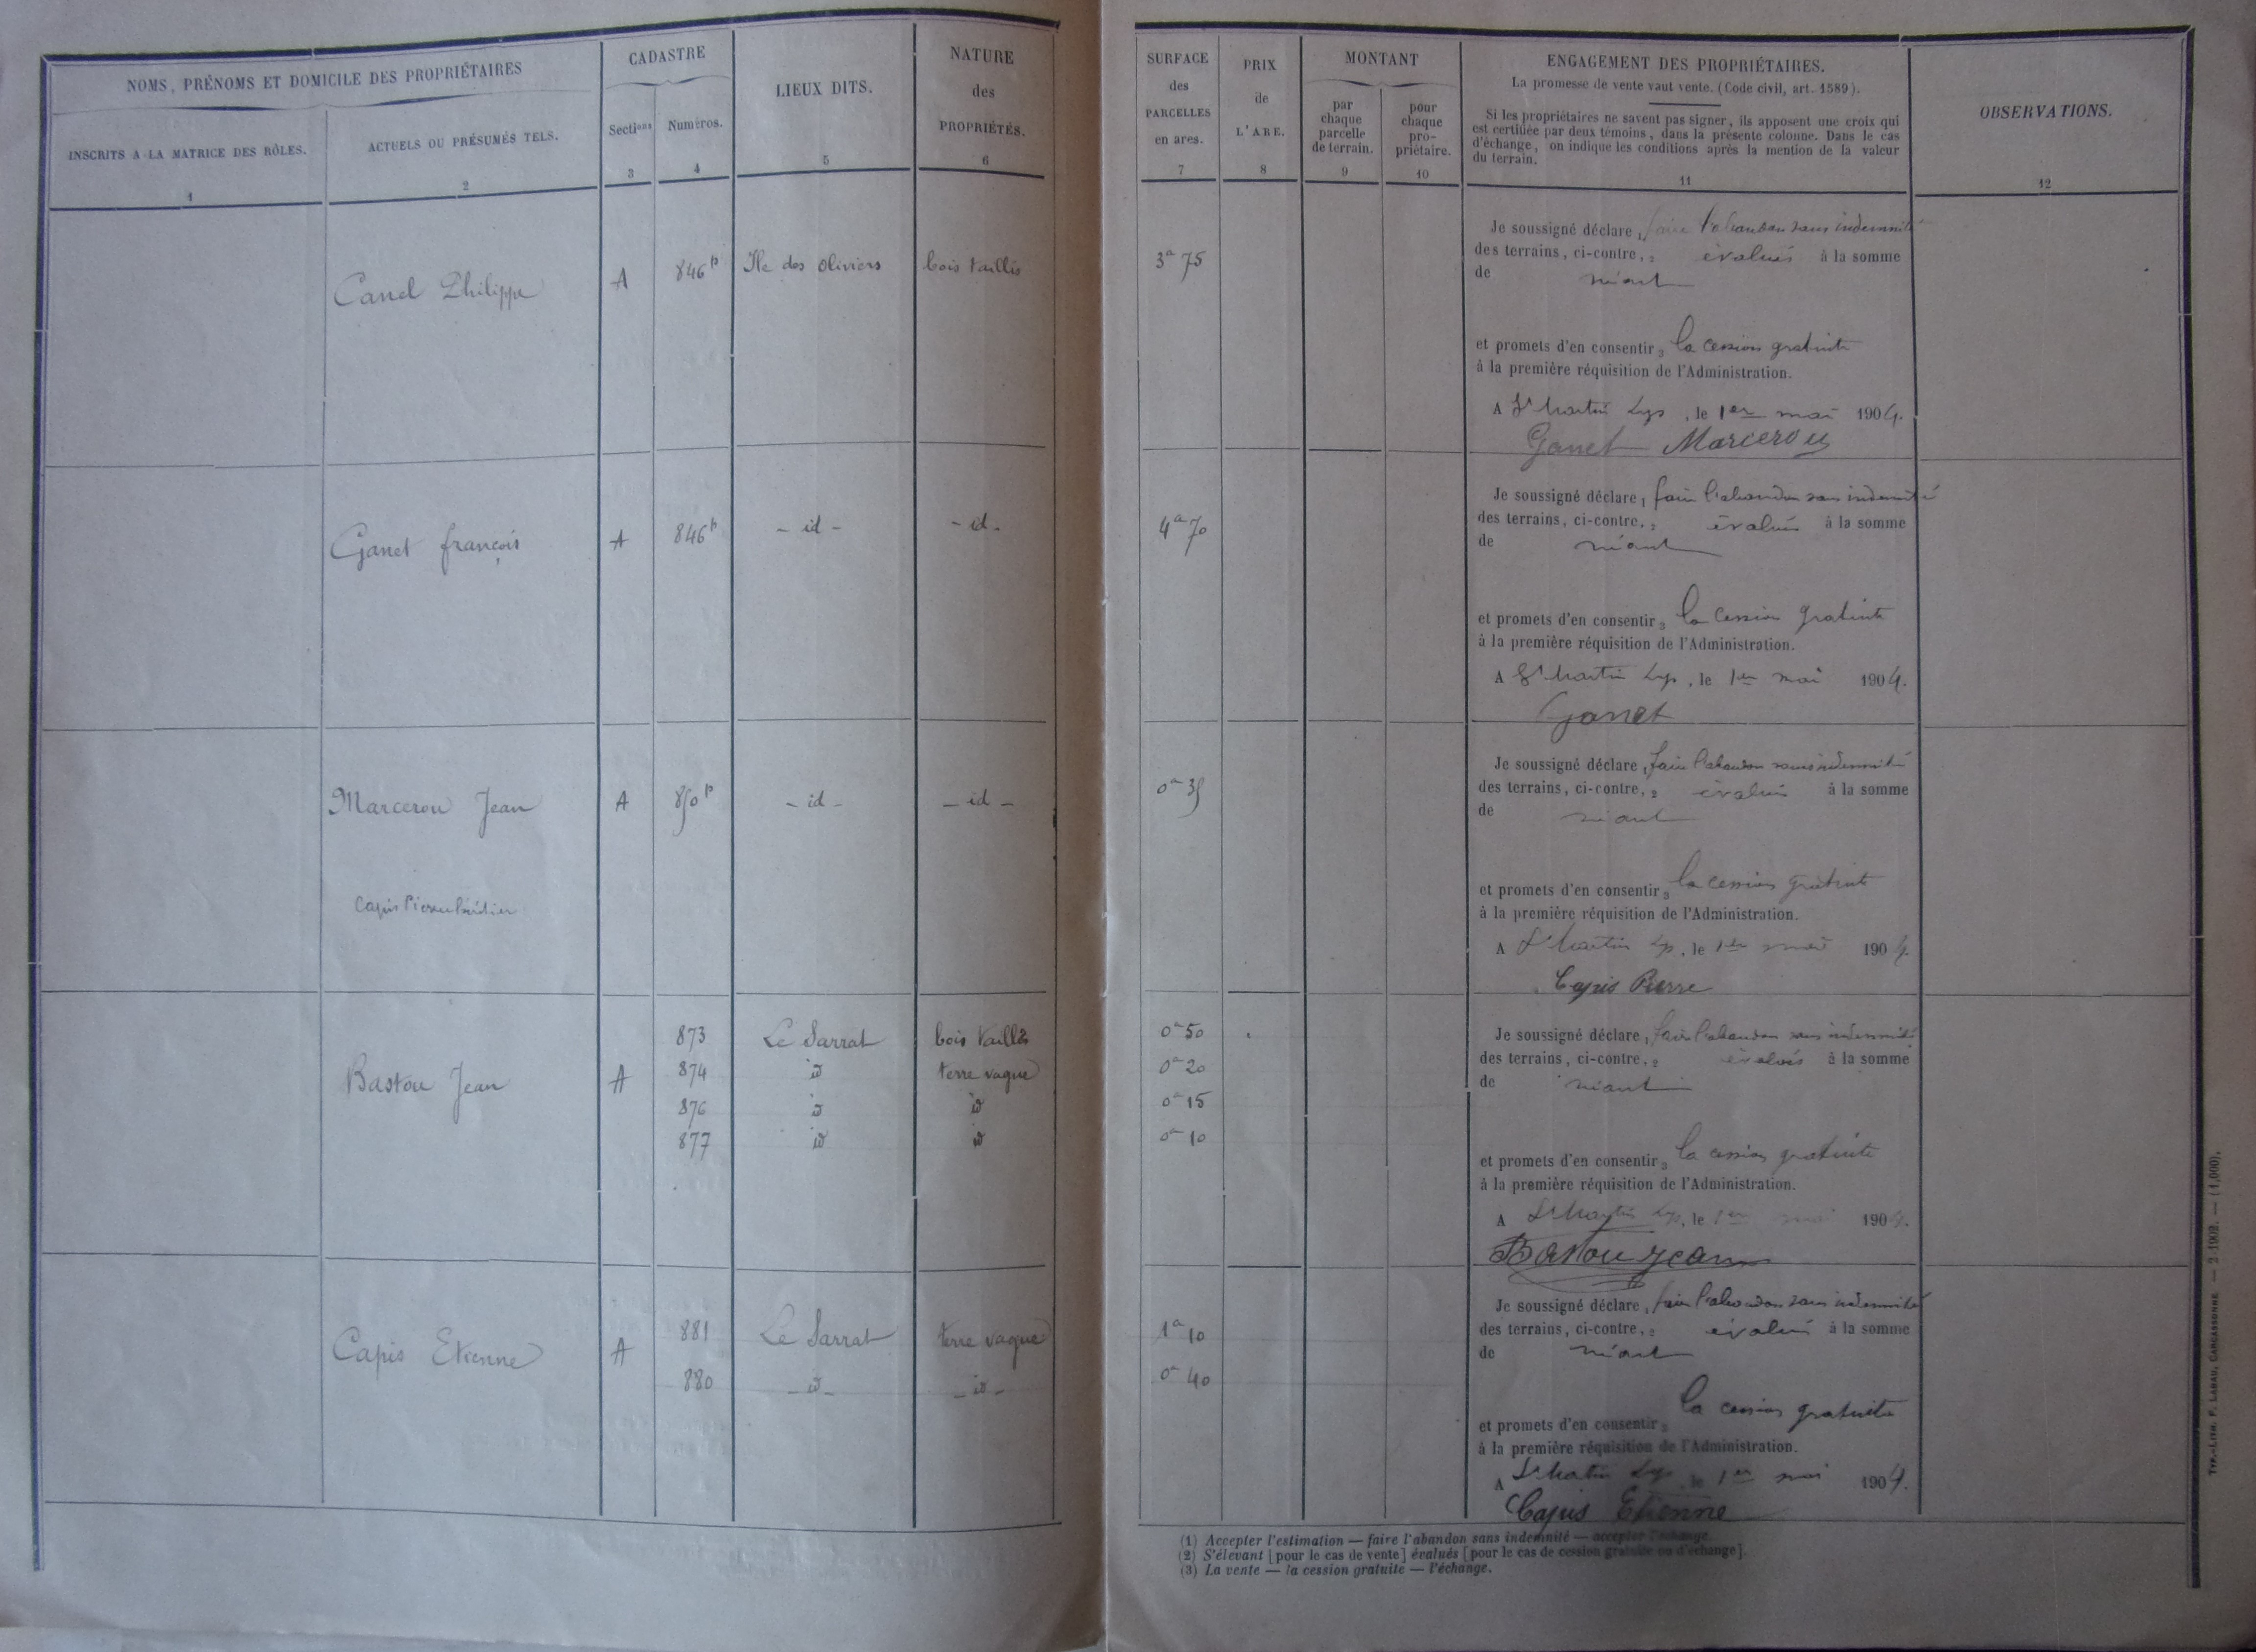 NOMS, PRÉNOMS ET DOMICILE DES PROPRIÉTAIRES
INSCRITS A LA MATRICE DES RÔLES.
1
ACTUELS OU PRÉSUMÉS TELS.
2
CADASTRE
Sections
3
Numéros.
4
LIEUX DITS.
5
NATURE
des
PROPRIÉTÉS.
6
SURFACE
des
PARCELLES
en ares.
7
PRIX
de
L'ARE.
8
MONTANT
par
chaque
parcelle
de terrain.
9
pour
chaque
pro-
priétaire.
10
ENGAGEMENT DES PROPRIÉTAIRES.
La promesse de vente vaut vente. (Code civil, art. 1589).
Si les propriétaires ne savent pas signer, ils apposent une croix qui
est certifiée par deux témoins, dans la présente colonne. Dans le cas
d'échange, on indique les conditions après la mention de la valeur
du terrain.
11
OBSERVATIONS.
12
Canel Philippe A 846p Ile des Oliviers bois taillis 3a 75
Je soussigné déclare, faire l'abandon sans indemnité
des terrains, ci-contre, 2 évalués à la somme
de néant
et promets d'en consentir 3 la cession gratuite
à la première réquisition de l'Administration.
A St Martin Lys, le 1er mai 1904.
Ganet Marcerou
Ganet françois A 846p - id - - id - 4a 70
Je soussigné déclare 1 faire l'abandon sans indemnité
des terrains, ci-contre, 2 évalués à la somme
de néant
et promets d'en consentir 3 la cession gratuite
à la première réquisition de l'Administration.
A St Martin Lys, le 1er mai 1904.
Ganet
Marcerou Jean A 850p - id - - id - 0a 35
Capis Pierre héritier
Je soussigné déclare 1 faire l'abandon sans indemnité
des terrains, ci-contre, 2 évalués à la somme
de néant
et promets d'en consentir 3 la cession gratuite
à la première réquisition de l'Administration.
A St Martin Lys, le 1er mai 1904.
Capis Pierre
Bastou Jean A
873 Le Sarrat bois taillis 0a 50
874 id terre vague 0a 20
876 id id 0a 15
877 id id 0a 10
Je soussigné déclare 1 faire l'abandon sans indemnité
des terrains, ci-contre, 2 évalués à la somme
de néant
et promets d'en consentir 3 la cession gratuite
à la première réquisition de l'Administration.
A St Martin Lys, le 1er mai 1904.
Bastou Jean
Capis Etienne A
881 Le Sarrat terre vague 1a 10
880 - id - - id - 0a 40
Je soussigné déclare 1 faire l'abandon sans indemnité
des terrains, ci-contre, 2 évalués à la somme
de néant
et promets d'en consentir 3 la cession gratuite
à la première réquisition de l'Administration.
A St Martin Lys, le 1er mai 1904.
Capis Etienne
(1) Accepter l'estimation — faire l'abandon sans indemnité — accepter l'échange.
(2) S'élevant [pour le cas de vente] évalués [pour le cas de cession gratuite ou d'échange].
(3) La vente — la cession gratuite — l'échange.
TYP.-LITH. F. LABAU, CARCASSONNE. — 2-1902. — (1,000).